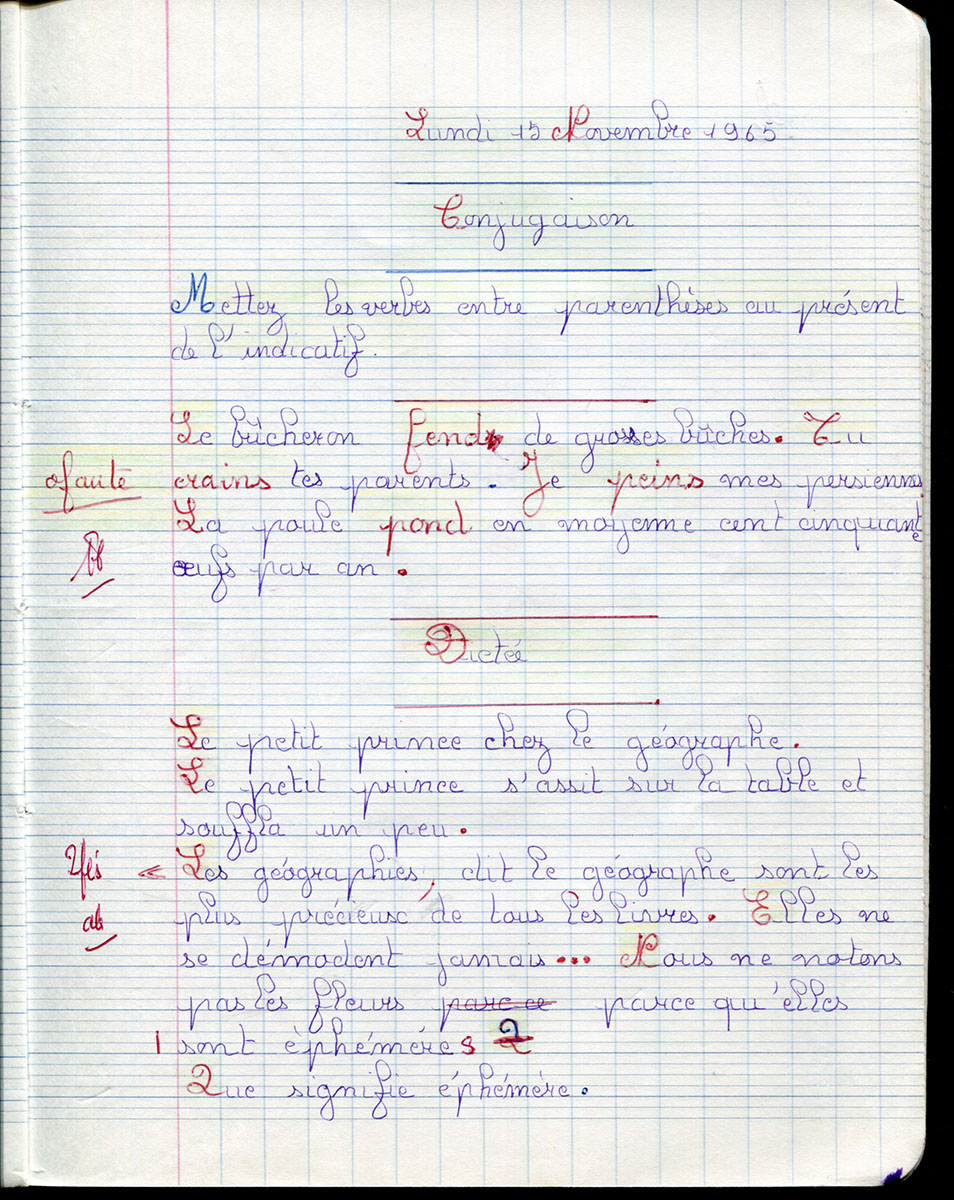 Lundi 15 Novembre 1965
Conjugaison
Mettez les verbes entre parenthèses au présent
de l'indicatif.
Le bûcheron fend de grosses bûches. Tu
0 faute crains tes parents. Je peins mes persiennes
La poule pond en moyenne cent cinquante
œufs par an.
Dictée
Le petit prince chez le géographe.
Le petit prince s'assit sur la table et
souffla un peu.
« Les géographies, dit le géographe sont les
plus précieux de tous les livres. Elles ne
se démodent jamais... Nous ne notons
pas les fleurs parce ce parce qu'elles
1 sont èphémères
Que signifie éphémére.